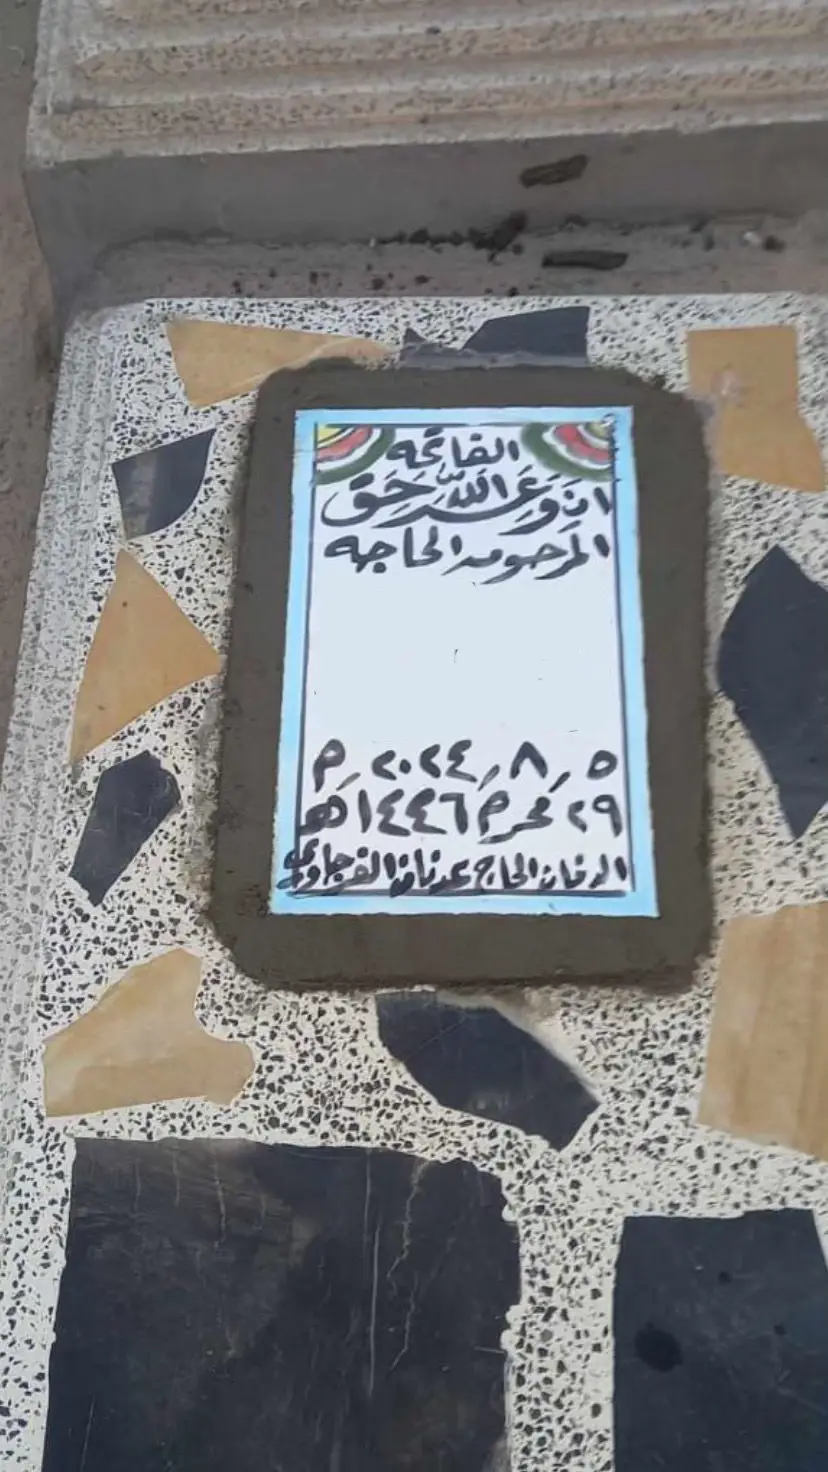 الفاتحة
ان وعد الله حق
المرحومه الحاجه
٥ / ٨ / ٢٠٢٤ م
٢٩ محرم ١٤٤٦ هـ
الدفان الحاج عدنان الفرجاوي